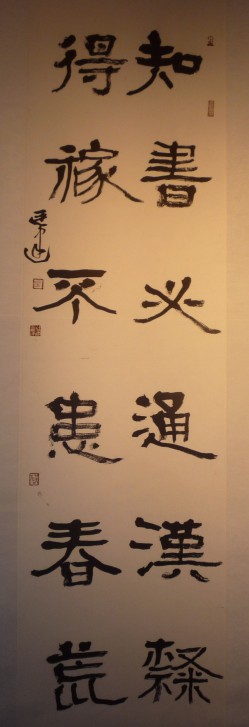 知書必通漢隸
得稼不患春荒